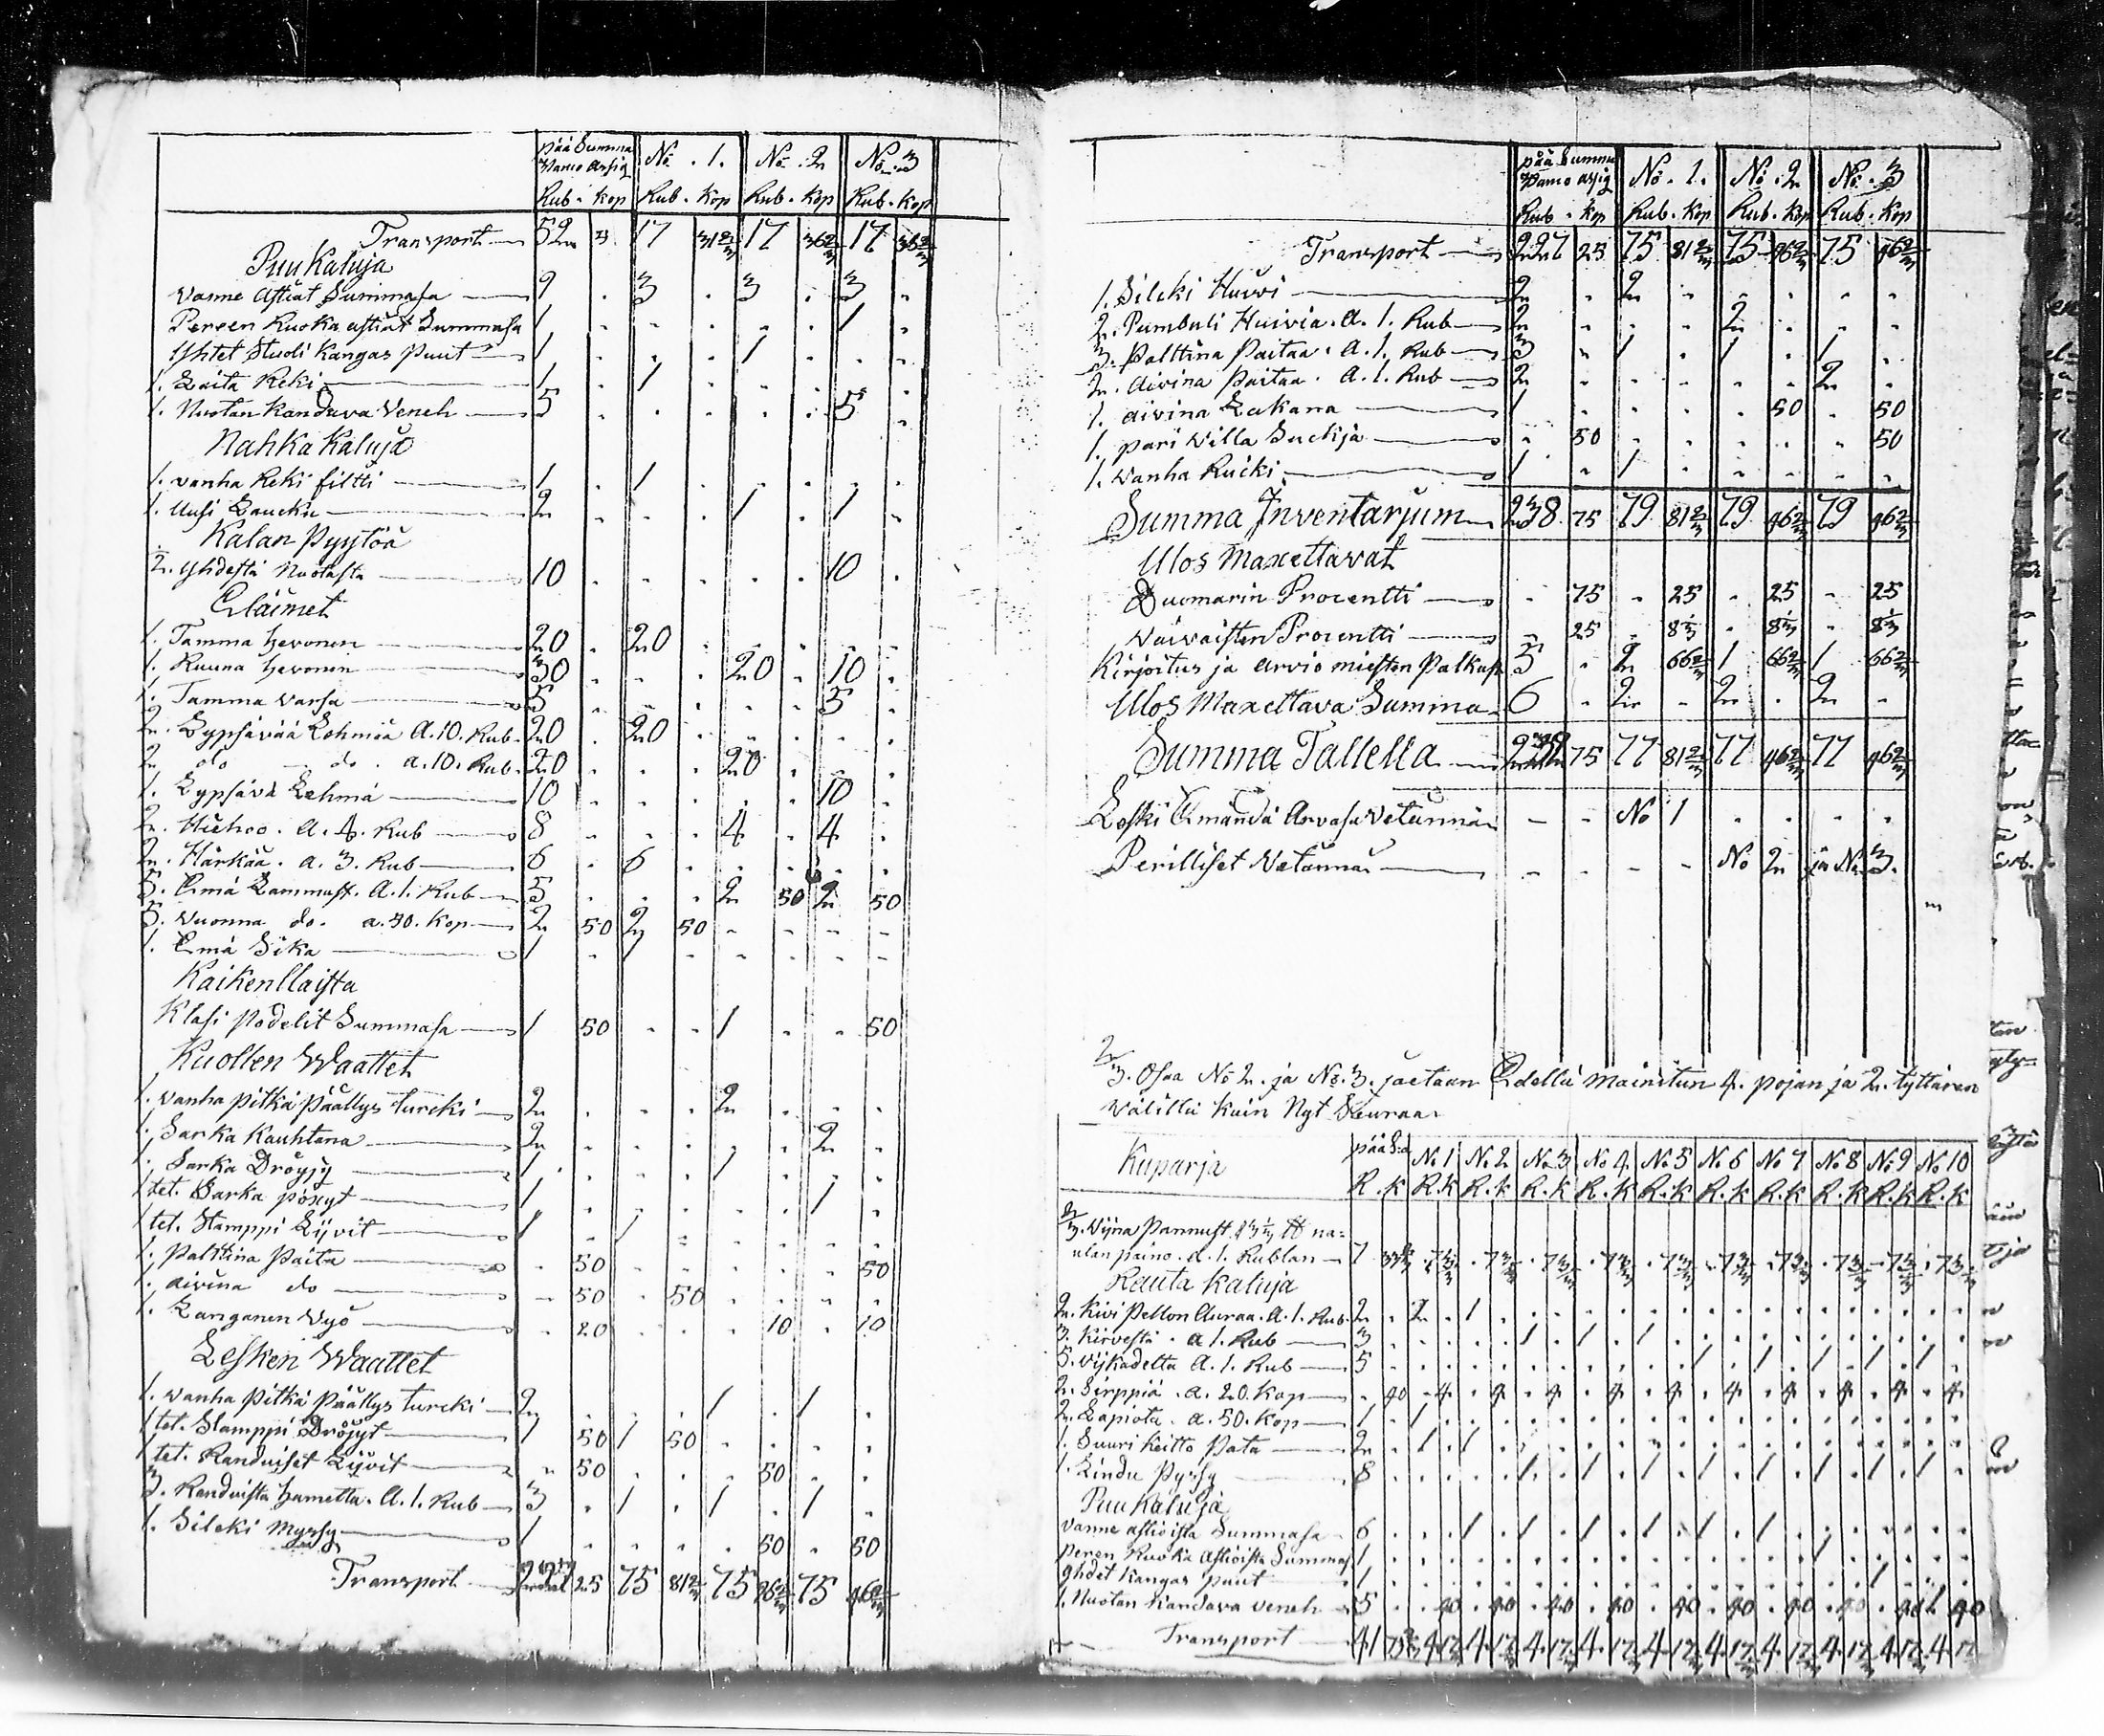 pää Summa No. 1. No. 2 No. 3
Banco Assig
Rub. kop Rub. kop Rub. kop Rub. kop
Transport 52 17 31 2/3 17 36 2/3 17 36 2/3
Puu Kaluja
Vanne Astiat Summasa 9 . 3 . 3 . 3 .
Pereen Ruoka astiat Summasa 1 . . . . . 1 .
Yhtet Stuoli Kangas puut 1 . . . 1 . . .
1. Laita Reki 1 . 1 . . . . .
1. Nuotan Kandava Veneh 5 . . . . . 5 .
Nahka Kaluja
1. vanha Reki filtti 1 . 1 . . . . .
1. Uusi Laucku 2 . . . 1 . 1 .
Kalan Pyytöä
1/2. Yhdestä Nuotasta 10 . . . . . 10 .
Eläimet
1. Tamma hevonen 20 . 20 . . . . .
1. Ruuna hevonen 30 . . . 20 . 10 .
1. Tamma varsa 5 . . . . . 5 .
2. Lypsävää Lehmää A. 10. Rub 20 . 20 . . . . .
2 do do. a. 10. Rub. 20 . . . 20 . . .
1. Lypsävä Lehmä 10 . . . . . 10 .
2. Hiehoo. A. 4. Rub 8 . . . 4 . 4 .
2. Härkää. a. 3. Rub 6 . 6 . . . . .
5. Emä Lammast. A. 1. Rub 5 . . . 2 50 2 50
5. Vuonna do. a. 50. Kop 2 50 2 50 - - - -
1. Emä Sika 1 - 1 - - - - -
Kaikenllaista
Klasi Podelit Summasa 1 50 - - 1 - - 50
Kuollen Waattet
1. vanha pitkä päällys turcki 2 . . . 2 . . .
1. Sarka Kauhtana 2 . . . . . 2 .
1. Sarka Dröyjy 1 . . . 1 . . .
1 tet. Sarka pöxyt 1 . . . . . 1 .
1 tet. Stamppi Lijvit 1 . 1 . . . . .
1. Palttina Paita . 50 . . . . . 50
1. aivina do - 50 . 50 . . . .
1. Langanen Vyö . 20 . . . 10 . 10
Lesken Waattet
1. Wanha Pitkä Päällys turcki 2 . . . 1 . 1 .
1 tet. Stamppi Dröjyt 1 50 1 50 . . . .
1 tet. Randuiset Lijvit - 50 . . . 50 . .
3. Randuista hametta. A. 1. Rub 3 . 1 . 1 . 1 .
1. Silcki Myssy 1 . . . . 50 . 50
Transport 227 25 75 81 2/3 75 96 2/3 75 46 2/3
pää Summa No. 1. No. 2 No. 3
Banco assig
Rub. kop Rub. Kop Rub. Kop Rub. Kop
Transport 227 25 75 81 2/3 75 96 2/3 75 46 2/3
1. Silcki Huivi 2 . 2 . . . . .
2. Pumbuli Huivia. A. 1. Rub 2 . . . 2 . . .
3. Palttina Paitaa. A. 1. Rub 3 . 1 . 1 . 1 .
2. Aivina Paitaa. A. 1. Rub 2 . . . . . 2 .
1. aivina Lakana 1 . . . . 50 . 50
1. pari Willa Suckja . 50 . . . . . 50
1. Wanha Rucki 1 . 1 . . . . .
Summa Inventarjum 238 75 79 81 2/3 79 46 2/3 79 46 2/3
Ulos Maxettavat
Duomarin Procentti - 75 - 25 - 25 - 25
Waivaisten Procentti - 25 - 8 1/3 - 8 1/3 - 8 1/3
Kirjoitus ja Arvio miesten Palkast 5 . 2 66 2/3 1 66 2/3 1 66 2/3
Ulos Maxettava Summa 6 . 2 - 2 . 2 -
Summa Tallella 232 75 77 81 2/3 77 46 2/3 77 46 2/3
Leski Emändä Arvasa Vetännä - - No 1 . . . .
Perilliset Vetännä - - - - No 2 ja No 3.
2/3. Osaa No 2. ja No. 3. jaetaan Edellä mainitun 4. pojan ja 2. tyttären
Välillä Kuin Nyt Seuraa
Kuparja pää S:a No 1 No 2 No 3 No 4 No 5 No 6 No 7 No 8 No 9 No 10
R. K R. K R. K R. K R. K R. K R. K R. K R. K R. K R. K
naulan paino. A. 1. Rublan
Rauta Kaluja
2. Kivi Pellon Auraa. A. 1. Rub.
3. Kirvestä. a 1. Rub 3
5. Vijkadetta A. 1. Rub 5
2. Sirppiä. a. 20. Kop . 40
2. Lapiota. a. 50. Kop 1
1. Suuri Keitto Pata 2
1. Lindu Pyssy 8
Puu Kaluja
Vanne astioista Summasa 6
peren Ruoka Astioista Summas 1
Yhdet Kangas puut 1
1. Nuotan Kandava veneh 5 . . 40 . 40 . 40 . 40 . 40 . 40 . 40 . 40 . 40 1 40
Transport 41